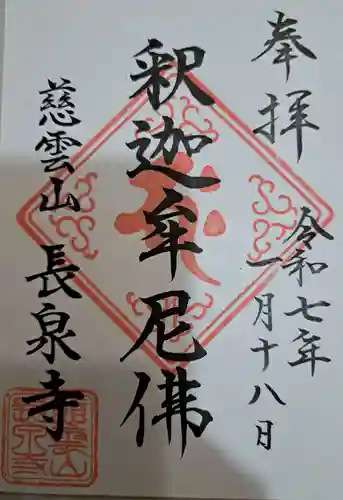 奉拝
令和七年
一月十八日
釈迦牟尼佛
慈雲山
長泉寺